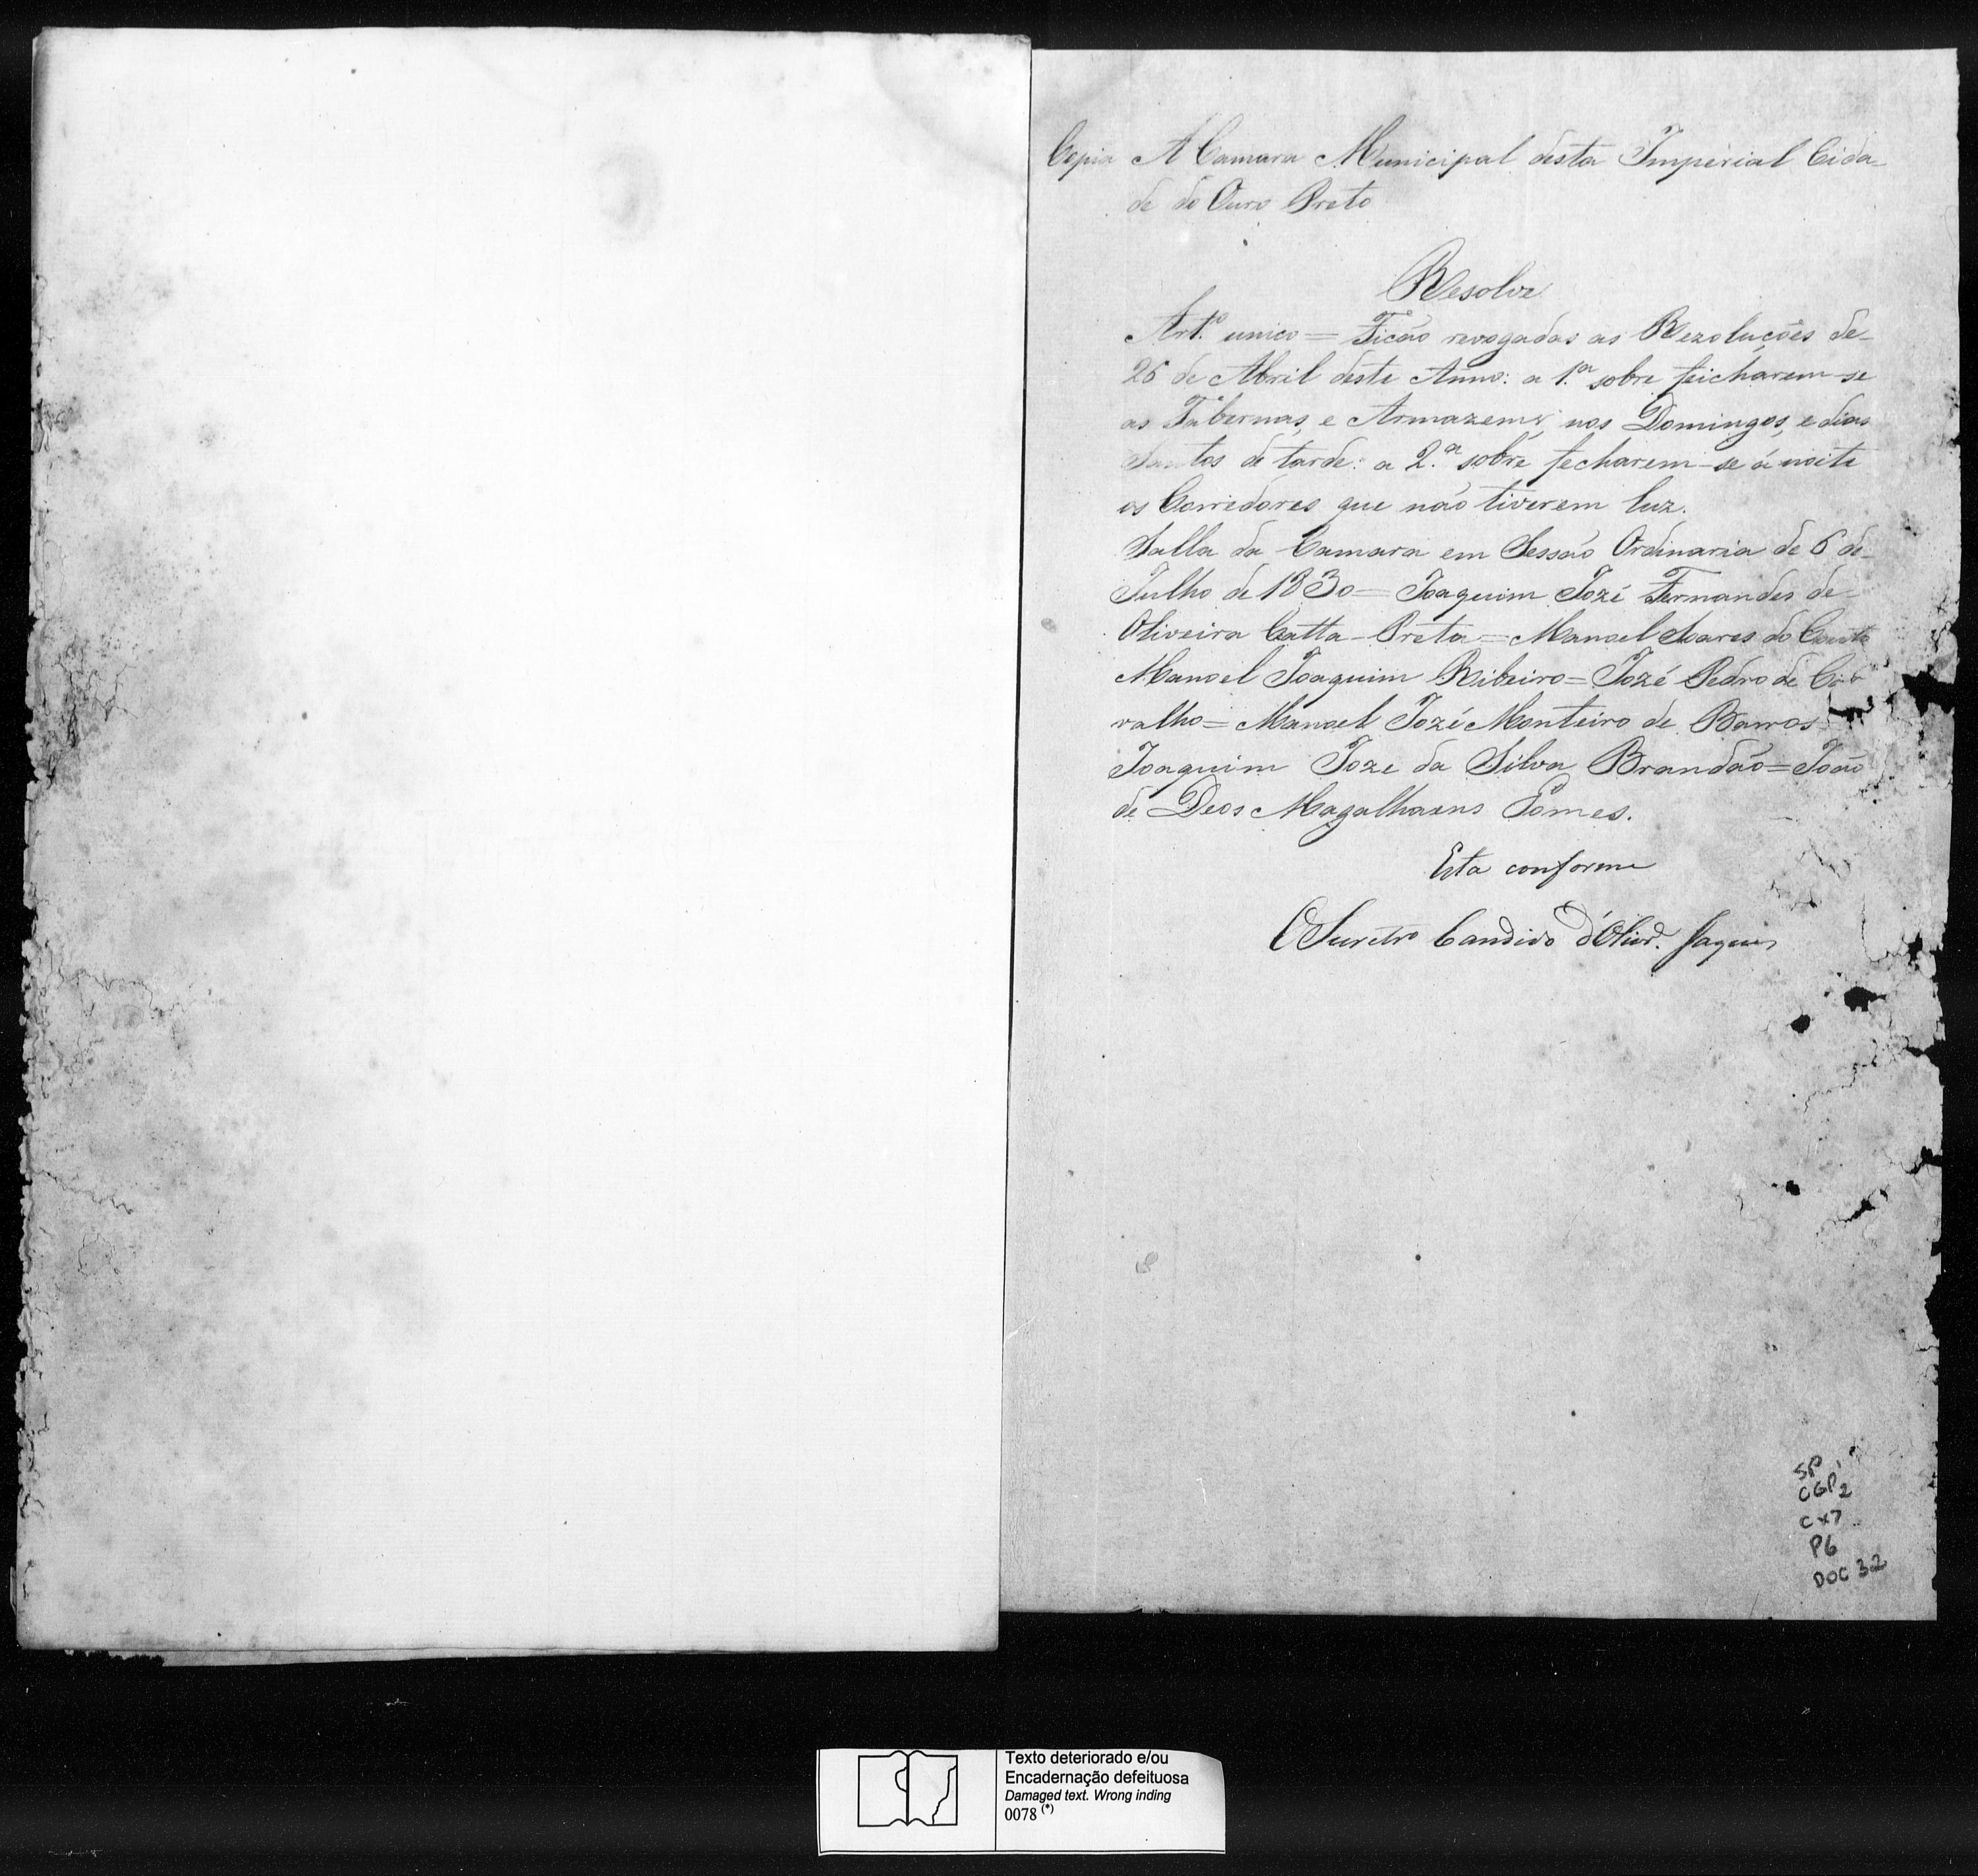 Copia A Camara Municipal desta Imperial Cida-
de do Ouro Preto
Resolve
Art.º unico = Ficão revogadas as Rezoluções de
26 de Abril deste Anno: a 1.ª sobre feicharem-se
as Tabernas, e Armazems, nos Domingos, e dias
Santos de tarde: a 2.ª sobre fecharem-se á noite
os Corredores que não tiverem luz.
Salla da Camara em Sessão Ordinaria de 6 de
Julho de 1830 = Joaquim Jozé Fernandes de
Oliveira Catta-Preta = Manoel Soares do Couto
Manoel Joaquim Ribeiro = Jozé Pedro de Car
valho = Manoel Jozé Monteiro de Barros
Joaquim Joze da Silva Brandão = João
de Deos Magalhaens Gomes.
Esta conforme
O Secretrº Candido d'Olivrª. Jaques
SP
CGP 2
CX7
P6
DOC 32
Texto deteriorado e/ou
Encadernação defeituosa
Damaged text. Wrong inding
0078 (*)